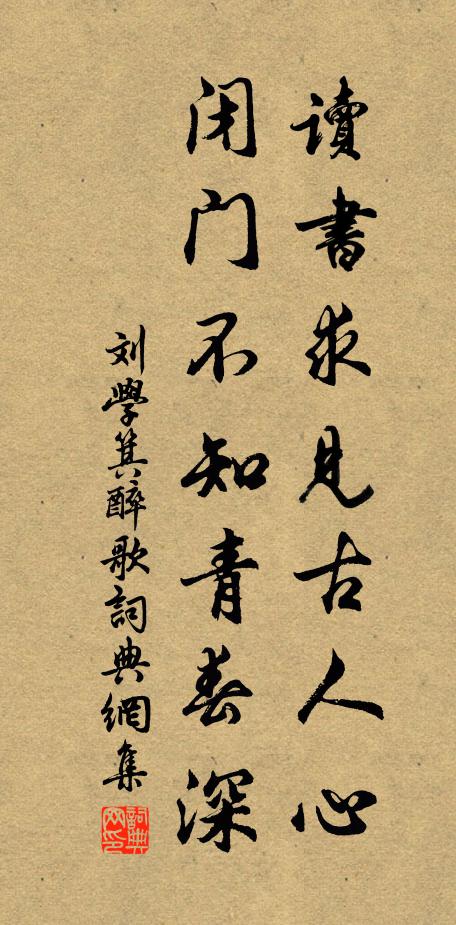 讀書求见古人心
闭门不知青春深
刘學箕醉歌詞典網集
詞典網印